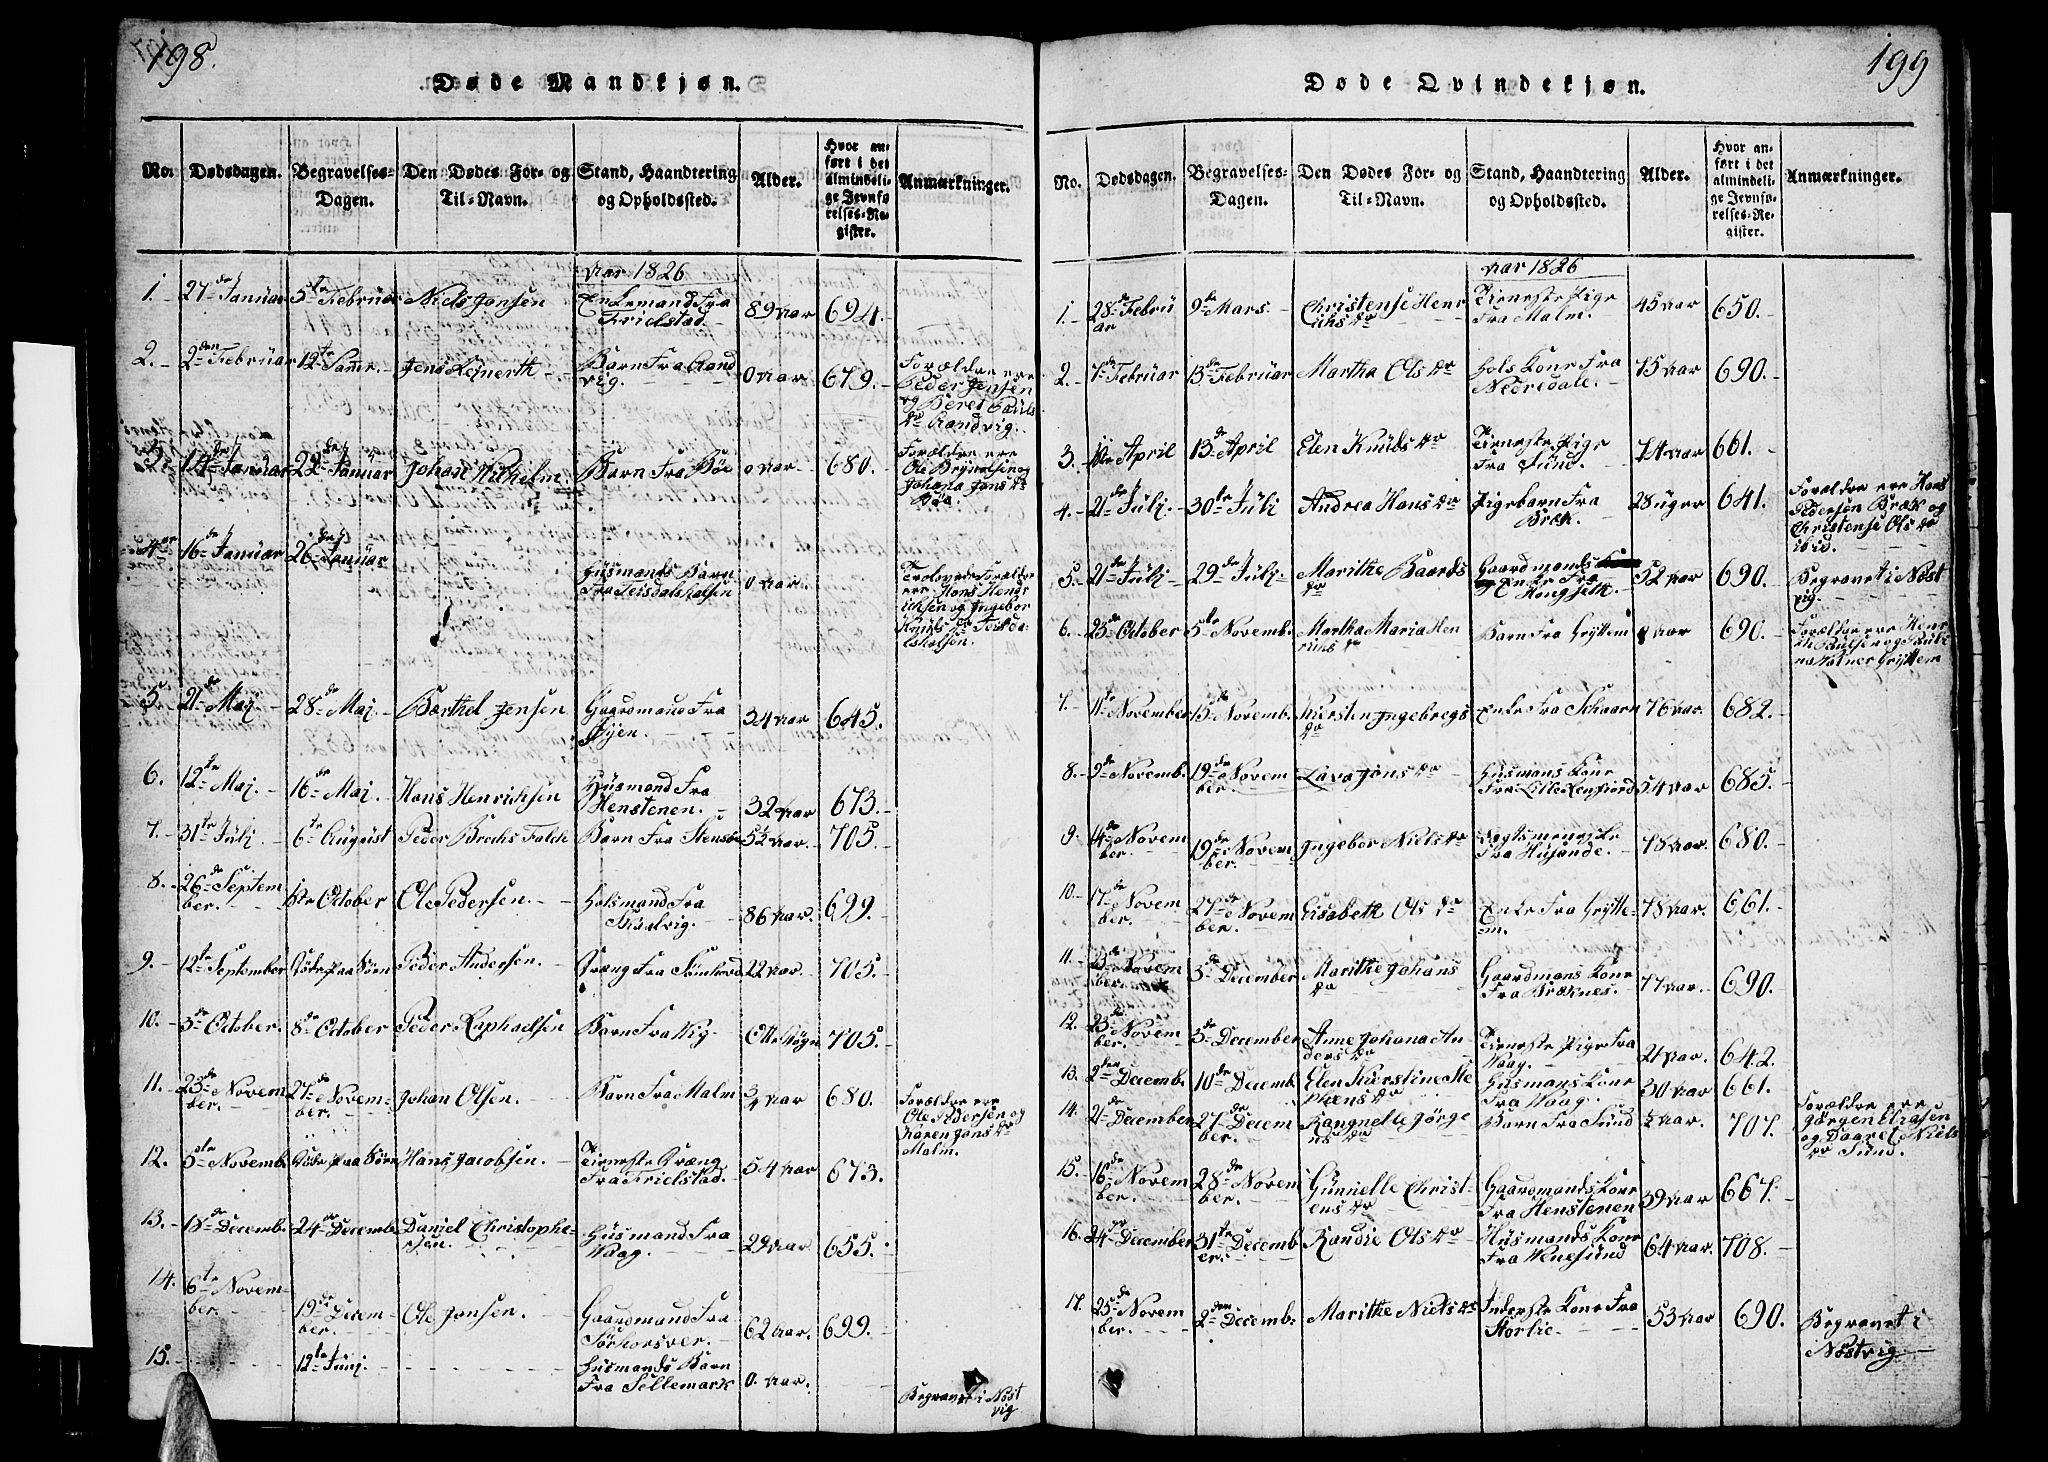 198.
Døde Mandkjøn.
No.
Dødsdagen.
Begravelses-
Dagen.
Den Dødes For- og
Til-Navn.
Stand, Haandtering
og Opholdssted.
Alder.
Hvor an-
ført i det
almindeli-
ge Jevnfø-
relses-Re-
gister.
Anmærkninger.
Aar 1826
1. 27de Januar 5te Februar Niels Jonsen
Fra
89 Aar 694.
2. 2den Februar 12te Jens
Barn Fra
vig.
0 Aar 679.
Forældre ere
Peder Jensen
og Beret Pauls
Dr
3. 14de Januar 22de Januar Johan Wilhelm. Barn Fra Bøe 0 Aar 680.
Forældre ere
Ole
Johana Jons Dr
Bøe
4. 16de Januar 26de Januar
Husmands Barn
Fra
0 Aar.
Forældre
ere Hans Henr
ichsen og Ingebor
Knuds Dr
5. 21de Maj 28de Maj. Barthel Jensen Gaardmand Fra
34 Aar 645.
6. 12te Maj. 16de Maj. Hans Henrichsen
Husmand Fra
Henstenen.
32 Aar 673.
7. 31te Julj. 6te August Peder Brochs Falch Barn Fra
Aar. 705.
8. 26de Septem
ber. 1ste October Ole Pedersen.
Fra
86 Aar. 699.
9. 12te September Peder Andersen.
Fra 22 Aar. 705.
10. 3de October. 8de October Peder Raphaelsen Barn Fra Vig. 705.
11. 23de Novem
ber. 27de Novem-
ber. Johan Olsen. Barn Fra Malm 3/4 Aar 680.
Forældre ere
Ole Pedersen og
Karen Jons Dr
Malm.
12. 5te Novemb. Hans Jacobsen.
Tieneste Dræng
Fra Frielstad. 54 Aar 673.
13. 18de Decemb. 24de Decemb. Daniel Christophe
rsen. Husmand Fra
Waag. 29 Aar. 655.
14. 6te Novem-
ber. 19de Decem-
ber. Ole Jonsen. Gaardmand Fra
62 Aar. 699.
15. 12te Junj. Husmands Barn
Fra Sellemark 0. Aar.
Begravet i Nøst
vig
199
Døde Qvindekjøn.
No.
Dødsdagen.
Begravelses-
Dagen.
Den Dødes For- og
Til-Navn.
Stand, Haandtering
og Opholdssted.
Alder.
Hvor an-
ført i det
almindeli-
ge Jevnfø-
relses-Re-
gister.
Anmærkninger.
Aar 1826
1. 28de Febru
ar 9de Mars. Christense Henr
ichs Dr Tieneste Pige
Fra Malm. 45 Aar 650.
2. 7de Februar 13de Februar Martha Ols Dr
Kone Fra
Nedredale. 75 Aar 690.
3. April 13de April Elen Knuds Dr
Tieneste Pige
Fra Sund. 74 Aar 661.
4. 21de Julj. 30te Julj Andrea Hans Dr Pigebarn Fra
Bræk. 28 uger 641.
Forældre ere Hans
Pedersen Bræk og
Christense Ols Dr
ibid.
5. 21de Julj. 29de Julj. Marithe Baards
Dr Gaardmands
Enke Fra
Hongseth. 52 Aar 690.
Begravet i Nøst
vig.
6. 25de October 5te Novemb. Martha Maria Hen
richs Dr Barn Fra Gryttem Aar 690.
Forældre ere Henr
ich Paulsen og
Gryttem
7. 11te November Novemb. Kiersten Ingebregs
Dr Enke Fra 76 Aar. 682.
8. 9de Novemb. 19de Novem
ber. Lava Jons Dr
Husmans Kone
Fra 54 Aar 685.
9. 14de Novem
ber. 19de Novem-
ber. Ingebor Niels Dr
Fra Husende. 78 Aar. 680.
10. 17de Novem
ber. 27de Novem
ber. Elisabeth Ols Dr Enke Fra Grytte-
m. 78 Aar. 661.
11. 23de Novem
ber. 3de December Marithe Johans
Dr Gaardmans Kone
Fra Bræknes. 77 Aar. 690.
12. 23de Novem
ber. 3de December Anne Johana An
ders Dr Tieneste Pige Fra
Waag. 21 Aar. 642.
13. 2den Decemb. 10de Decemb. Elen Kierstine Ste
phens Dr Husmans Kone
Fra Waag. 30 Aar 661.
14. 21de December 27de Decem
ber. Rangnelle Jørge
ns Dr Barn Fra Sund Aar. 707.
Forældre ere
Jørgen Eliasen
og Daaret Niels
Dr Sund.
15. 16de Novem
ber. 28de Novem
ber. Gunnelle Christ-
ens Dr Gaardmands Kone
Fra Henstenen 39 Aar 667.
16. 24de December 31te Decemb
er. Randie Ols Dr Husmands Kone
Fra Wenesund 64 Aar. 708.
17. 25de Novem
ber. 2den Decemb. Marithe Niels Dr Inderste Kone Fra
Storlie. 53 Aar 690.
Begravet i
Nøstvig